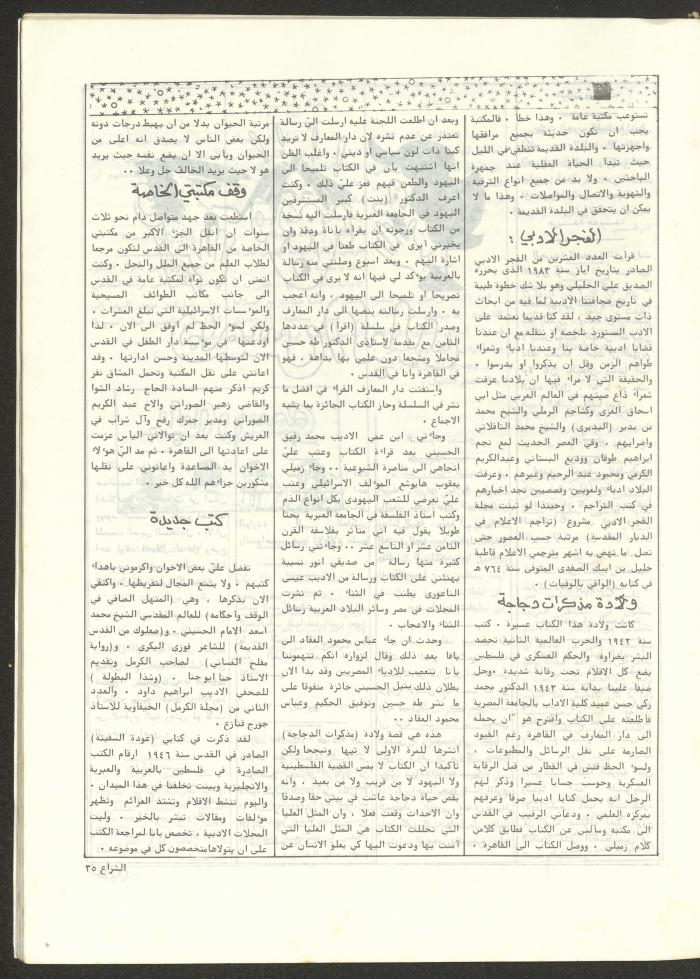 تستوعب مكتبة عامة ٠ وهذا خطأ ٠ فالمكتبة
يجب ان تكون حديثة بجميع مرافقها
واجهزتها ٠ والبلدة القديمة تنطفي في الليل
حيث تبدأ الحياة العقلية عند جمهرة
الباحثين ٠ ولا بد من جميع انواع الترفية
والتهوية والاتصال والمواصلات ٠ وهذا ما لا
يمكن ان يتحقق في البلدة القديمة ٠
الفجر الادبي :
قرأت العدد العشرين من الفجر الادبي
الصادر بتاريخ ايار سنة ١٩٨٣ الذي يحرره
الصديق علي الخليلي وهو بلا شك خطوة طيبة
في تاريخ صحافتنا الادبية لما فيه من ابحاث
ذات مستوى جيد ، لقد كنا قديما نعتمد على
الادب المستورد نلخصه او ننقله مع ان عندنا
قضايا ادبية خاصة بنا وعندنا ادباء وشعراء
طواهم الزمن وقل ان يذكروا او يدرسوا ٠
والحقيقة التي لا مراء فيها ان بلادنا عرفت
شعراء ذاع صيتهم في العالم العربي مثل ابي
اسحاق الغزى وكشاجم الرملي والشيخ محمد
بن بدير (البديرى) والشيخ محمد التافلاتي
واضرابهم ٠ وفي العصر الحديث لمع نجم
ابراهيم طوقان ووديع البستاني وعبدالكريم
الكرمي ومحمود عبد الرحيم وغيرهم ٠ وعرفت
البلاد ادباء ولغويين وقصصيين نجد اخبارهم
في كتب التراجم ٠ وحبذا لو تبنت مجلة
الفجر الادبي مشروع (تراجم الاعلام في
الديار المقدسة) مرتبة حسب العصور حتى
تصل ما نهض به اشهر مترجمي الاعلام قاطبة
خليل بن ايبك الصفدى المتوفى سنة ٧٦٤ هـ
في كتابه (الوافي بالوفيات) ٠
ولادة مذكرات دجاجة
كانت ولادة هذا الكتاب عسيرة ٠ كتب
سنة ١٩٤٢ والحرب العالمية الثانية تحصد
البشر بضراوة والحكم العسكرى في فلسطين
يضع كل الاقلام تحت رقابة شديدة ٠ وحل
ضيفا علينا بداية سنة ١٩٤٣ الدكتور محمد
زكي حسن عميد كلية الاداب بالجامعة المصرية
فأطلعته على الكتاب واقترح هو "ان يحمله
الى دار المعارف في القاهرة رغم القيود
الصارمة على نقل الرسائل والمطبوعات ٠
ولسوء الحظ فتش في القطار من قبل الرقابة
العسكرية وحوسب حسابا عسيرا وذكر لهم
الرجل انه يحمل كتابا ادبيا صرفا وعرفهم
بمركزه العلمي ٠ ودعاني الرقيب في القدس
الى مكتبه وسألني عن الكتاب فطابق كلامي
كلام زميلي ٠ ووصل الكتاب الى القاهرة ٠
وبعد ان اطلعت اللجنة عليه ارسلت اليّ رسالة
تعتذر عن عدم نشره لان دار المعارف لا تريد
كتبا ذات لون سياسي او ديني ٠ واغلب الظن
انها اشتبهت بأن في الكتاب تلميحا الى
اليهود والطعن فيهم فعز عليّ ذلك ٠ وكنت
اعرف الدكتور (بنت) كبير المستشرقين
اليهود في الجامعة العبرية فأرسلت اليه نسخة
من الكتاب ورجوته ان يقرأه بأناة ودقة وان
يخبرني أيرى في الكتاب طعنا في اليهود او
اشارة اليهم ٠ وبعد اسبوع وصلتني منه رسالة
بالعربية يؤكد لي فيها انه لا يرى في الكتاب
تصريحا او تلميحا الى اليهود ، وانه اعجب
به ٠ وارسلت رسالته بنصها الى دار المعارف
وصدر الكتاب في سلسلة (اقرأ) في عددها
الثامن مع مقدمة لاستاذى الدكتور طه حسين
مجاملا ومشجعا دون علمي بها بداهة ، فهو
في القاهرة وانا في القدس ٠
واستفتت دار المعارف القراء في افضل ما
نشر في السلسلة وحاز الكتاب الجائزة بما يشبه
الاجماع ٠
وجاءني ابن عمي الاديب محمد رفيق
الحسيني بعد قراءة الكتاب وعتب عليّ
اتجاهي الى مناصرة الشيوعية ٠٠ وجاء زميلي
يعقوب هايوشع المؤلف الاسرائيلي وعتب
عليّ تعرضي للشعب اليهودى بكل انواع الذم
وكتب استاذ الفلسفة في الجامعة العبرية بحثا
طويلا يقول فيه انني متأثر بفلاسفة القرن
الثامن عشر او التاسع عشر ٠٠ وجاءتني رسائل
كثيرة منها رسالة من صديقي انور نسيبة
يهنئني على الكتاب ورسالة من الاديب عيسى
الناعورى يطنب في الثناء ٠ ثم نشرت
المجلات في مصر وسائر البلاد العربية رسائل
الثناء والاعجاب ٠
وحدث ان جاء عباس محمود العقاد الى
يافا بعد ذلك وقال لزواره انكم تتهموننا
بأنا نتعصب للادباء المصريين وقد بدا الان
بطلان ذلك بنيل الحسيني جائزة متفوقا على
ما نشر طه حسين وتوفيق الحكيم وعباس
محمود العقاد ٠٠
هذه هي قصة ولادة (مذكرات الدجاجة)
انشرها للمرة الاولى لا تيها وتبجحا ولكن
تأكيدا ان الكتاب لا يمس القضية الفلسطينية
ولا اليهود لا من قريب ولا من بعيد ، وانه
يقص حياة دجاجة عاشت في بيتي حقا وصدقا
وان الاحداث وقعت فعلا ، وان المثل العليا
التي تخللت الكتاب هي المثل العليا التي
آمنت بها ودعوت اليها كي يعلو الانسان عن
مرتبة الحيوان بدلا من ان يهبط درجات دونه
ولكن بعض الناس لا يصدق انه اعلى من
الحيوان ويأبى الا ان يضع نفسه حيث يريد
هو لا حيث يريد الخالق جل وعلا ٠٠
وقف مكتبتي الخاصة
استطعت بعد جهد متواصل دام نحو ثلاث
سنوات ان انقل الجزء الاكبر من مكتبتي
الخاصة من القاهرة الى القدس لتكون مرجعا
لطلاب العلم من جميع الملل والنحل ٠ وكنت
اتمنى ان تكون نواة لمكتبة عامة في القدس
الى جانب مكاتب الطوائف المسيحية
والمؤسسات الاسرائيلية التي تبلغ العشرات ٠
ولكن لسوء الحظ لم أوفق الى الآن ٠ لذا
اودعتها في مؤسسة دار الطفل في القدس
الان لتوسطها المدينة وحسن ادارتها ٠ وقد
اعانني على نقل المكتبة وتحمل المشاق نفر
كريم اذكر منهم السادة الحاج رشاد الشوا
والقاضي زهير الصوراني والاخ عبد الكريم
الصوراني ومدير جمرك رفح وآل شراب في
العريش وكنت بعد ان توالاني اليأس عزمت
على اعادتها الى القاهرة ٠ ثم مد اليّ هؤلاء
الاخوان يد المساعدة واعانوني على نقلها
مشكورين جزاهم الله كل خير ٠
كتب جديدة
تفضل عليّ بعض الاخوان واكرموني باهداء
كتبهم ٠ ولا يتسع المجال لتقريظها ٠ واكتفي
الان بذكرها ، وهي (المنهل الصافي في
الوقف وأحكامه) للعالم المقدسي الشيخ محمد
اسعد الامام الحسيني ٠ و(صعلوك من القدس
القديمة) للشاعر فوزى البكرى ٠ و(رواية
مفلح الغساني) لصاحب الكرمل وتقديم
الاستاذ حنا ابو حنا ٠ (وشذا البطولة )
للصحفي الاديب ابراهيم داود ٠ والعدد
الثاني من (مجلة الكرمل) الحيفاوية للاستاذ
جورج قنازع ٠
لقد ذكرت في كتابي (عودة السفينة)
الصادر في القدس سنة ١٩٤٦ ارقام الكتب
الصادرة في فلسطين بالعربية والعبرية
والانجليزية وبينت تخلفنا في هذا الميدان ٠
واليوم تنشط الاقلام وتشتد العزائم وتظهر
مؤلفات ومقالات تبشر بالخير ٠ وليت
المجلات الادبية ، تخصص بابا لمراجعة الكتب
على ان يتولاها متخصصون كل في موضوعه ٠
الشراع ٣٥